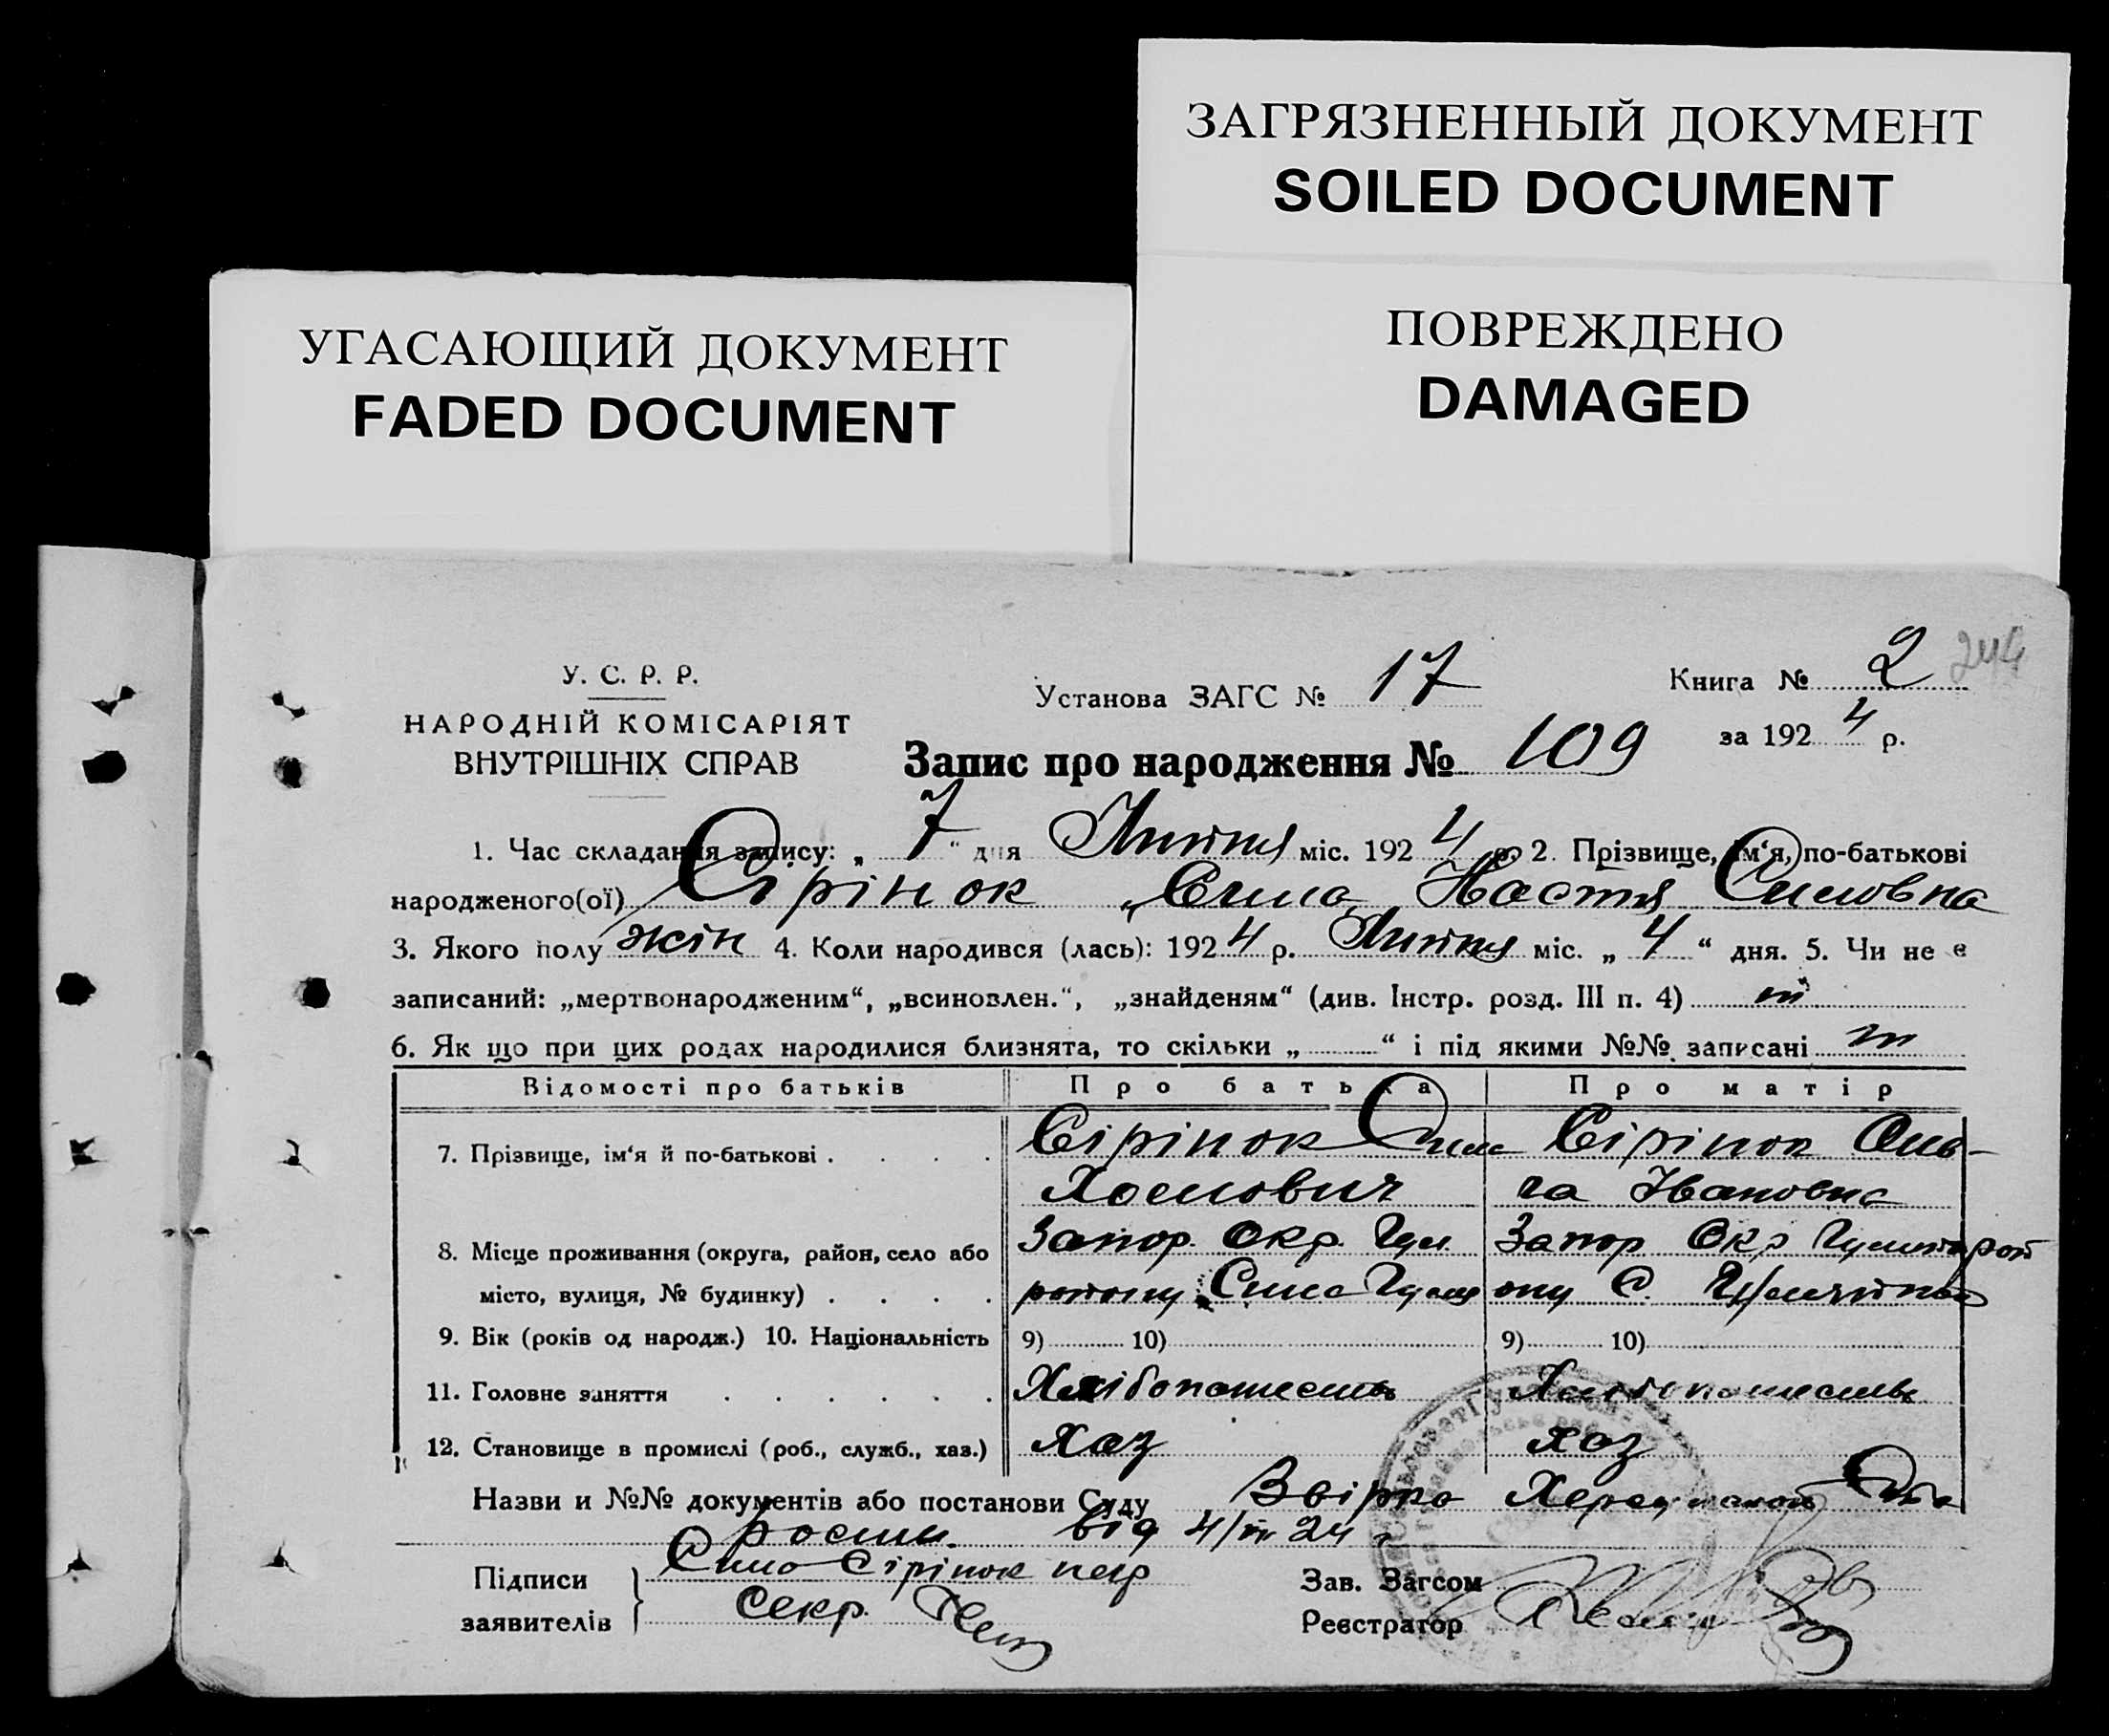 ЗАГРЯЗНЕННЫЙ ДОКУМЕНТ
SOILED DOCUMENT
ПОВРЕЖДЕНО
DAMAGED
УГАСАЮЩИЙ ДОКУМЕНТ
FADED DOCUMENT
У. С. Р. Р.
НАРОДНІЙ КОМІСАРІЯТ
ВНУТРІШНІХ СПРАВ
Установа ЗАГС № 17
Книга № 2 244
за 1924 р.
Запис про народження № 109
1. Час складання запису: „ 7 “ дня Липня міс. 1924 р. 2. Прізвище, ім‘я, по-батькові
народженого(ої) Сірінок Настя Симовна
3. Якого полу жін 4. Коли народився (лась): 1924 р. Липня міс. „ 4 “ дня. 5. Чи не є
записаний: „мертвонародженим“, „всиновлен.“, „знайденям“ (див. Інстр. розд. III п. 4)
6. Як що при цих родах народилися близнята, то скільки „ “ і під якими №№ записані
Відомості про батьків Про батька Про матір
7. Прізвище, ім‘я й по-батькові . . . . Сірінок Сима Сірінок Оль-
Хомович га Івановна
8. Місце проживання (округа, район, село або Запор. Окр. Гул. Запор Окр
місто, вулиця, № будинку) . . . . району Села С.
9. Вік (років од народж.) 10. Національність 9) 10) 9) 10)
11. Головне заняття . . . . . . Хлібопашество Хлібопашество
12. Становище в промислі (роб., служб., хаз.) Хаз Хаз
Назви и №№ документів або постанови Суду
від 24 р
Підписи заявителів Сима Сірінок
Секр.
Зав. Загсом
Реєстратор